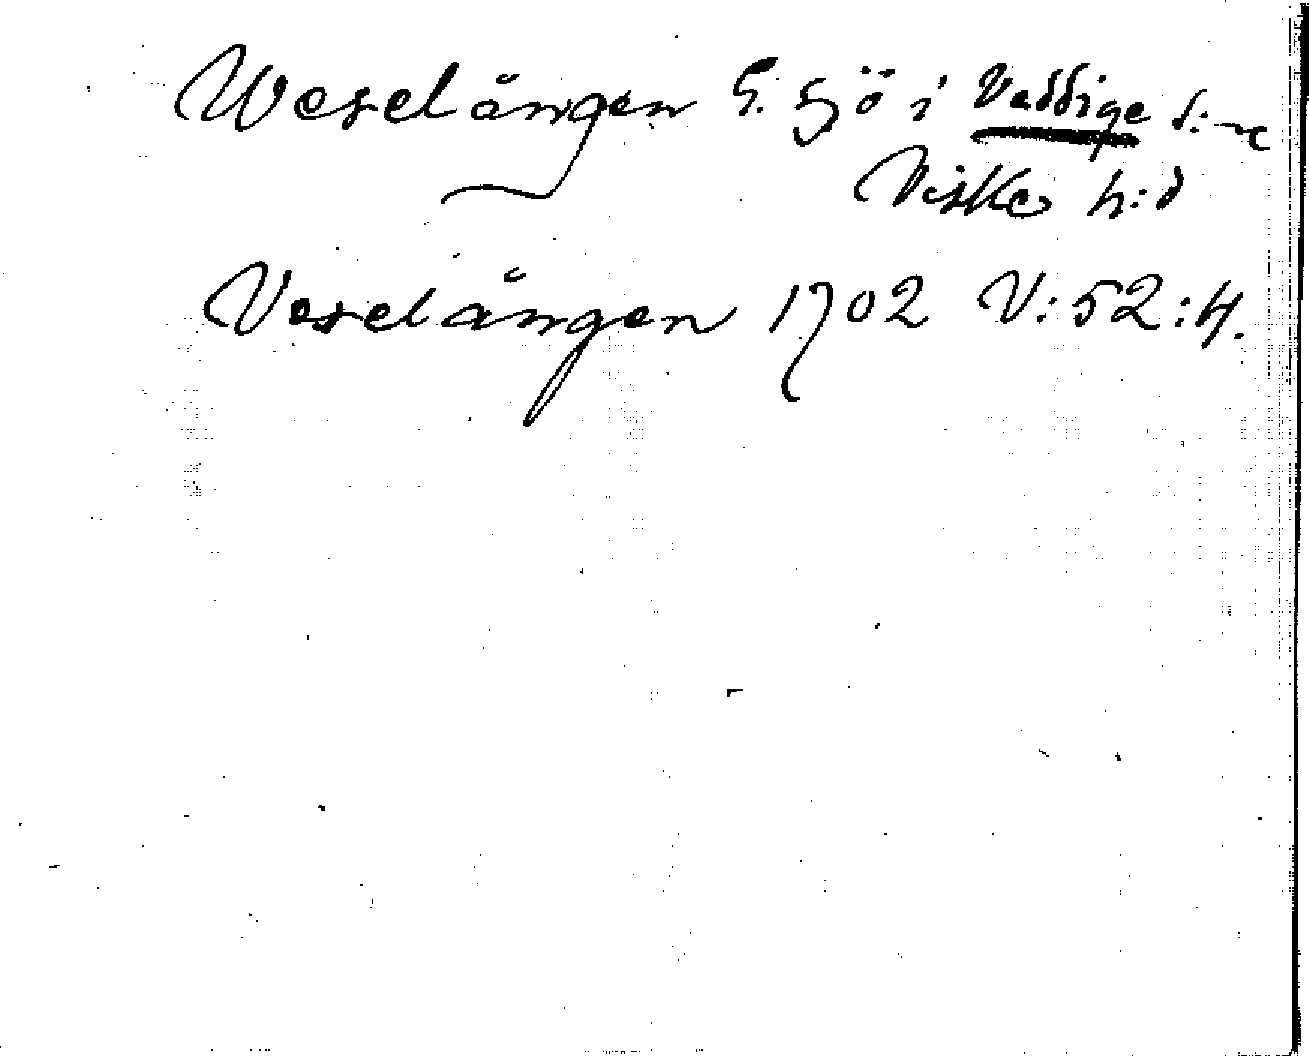 Weselängen h. sjö i Veddige s:n
Viske h:d
Veselängen 1702 V:52:4.